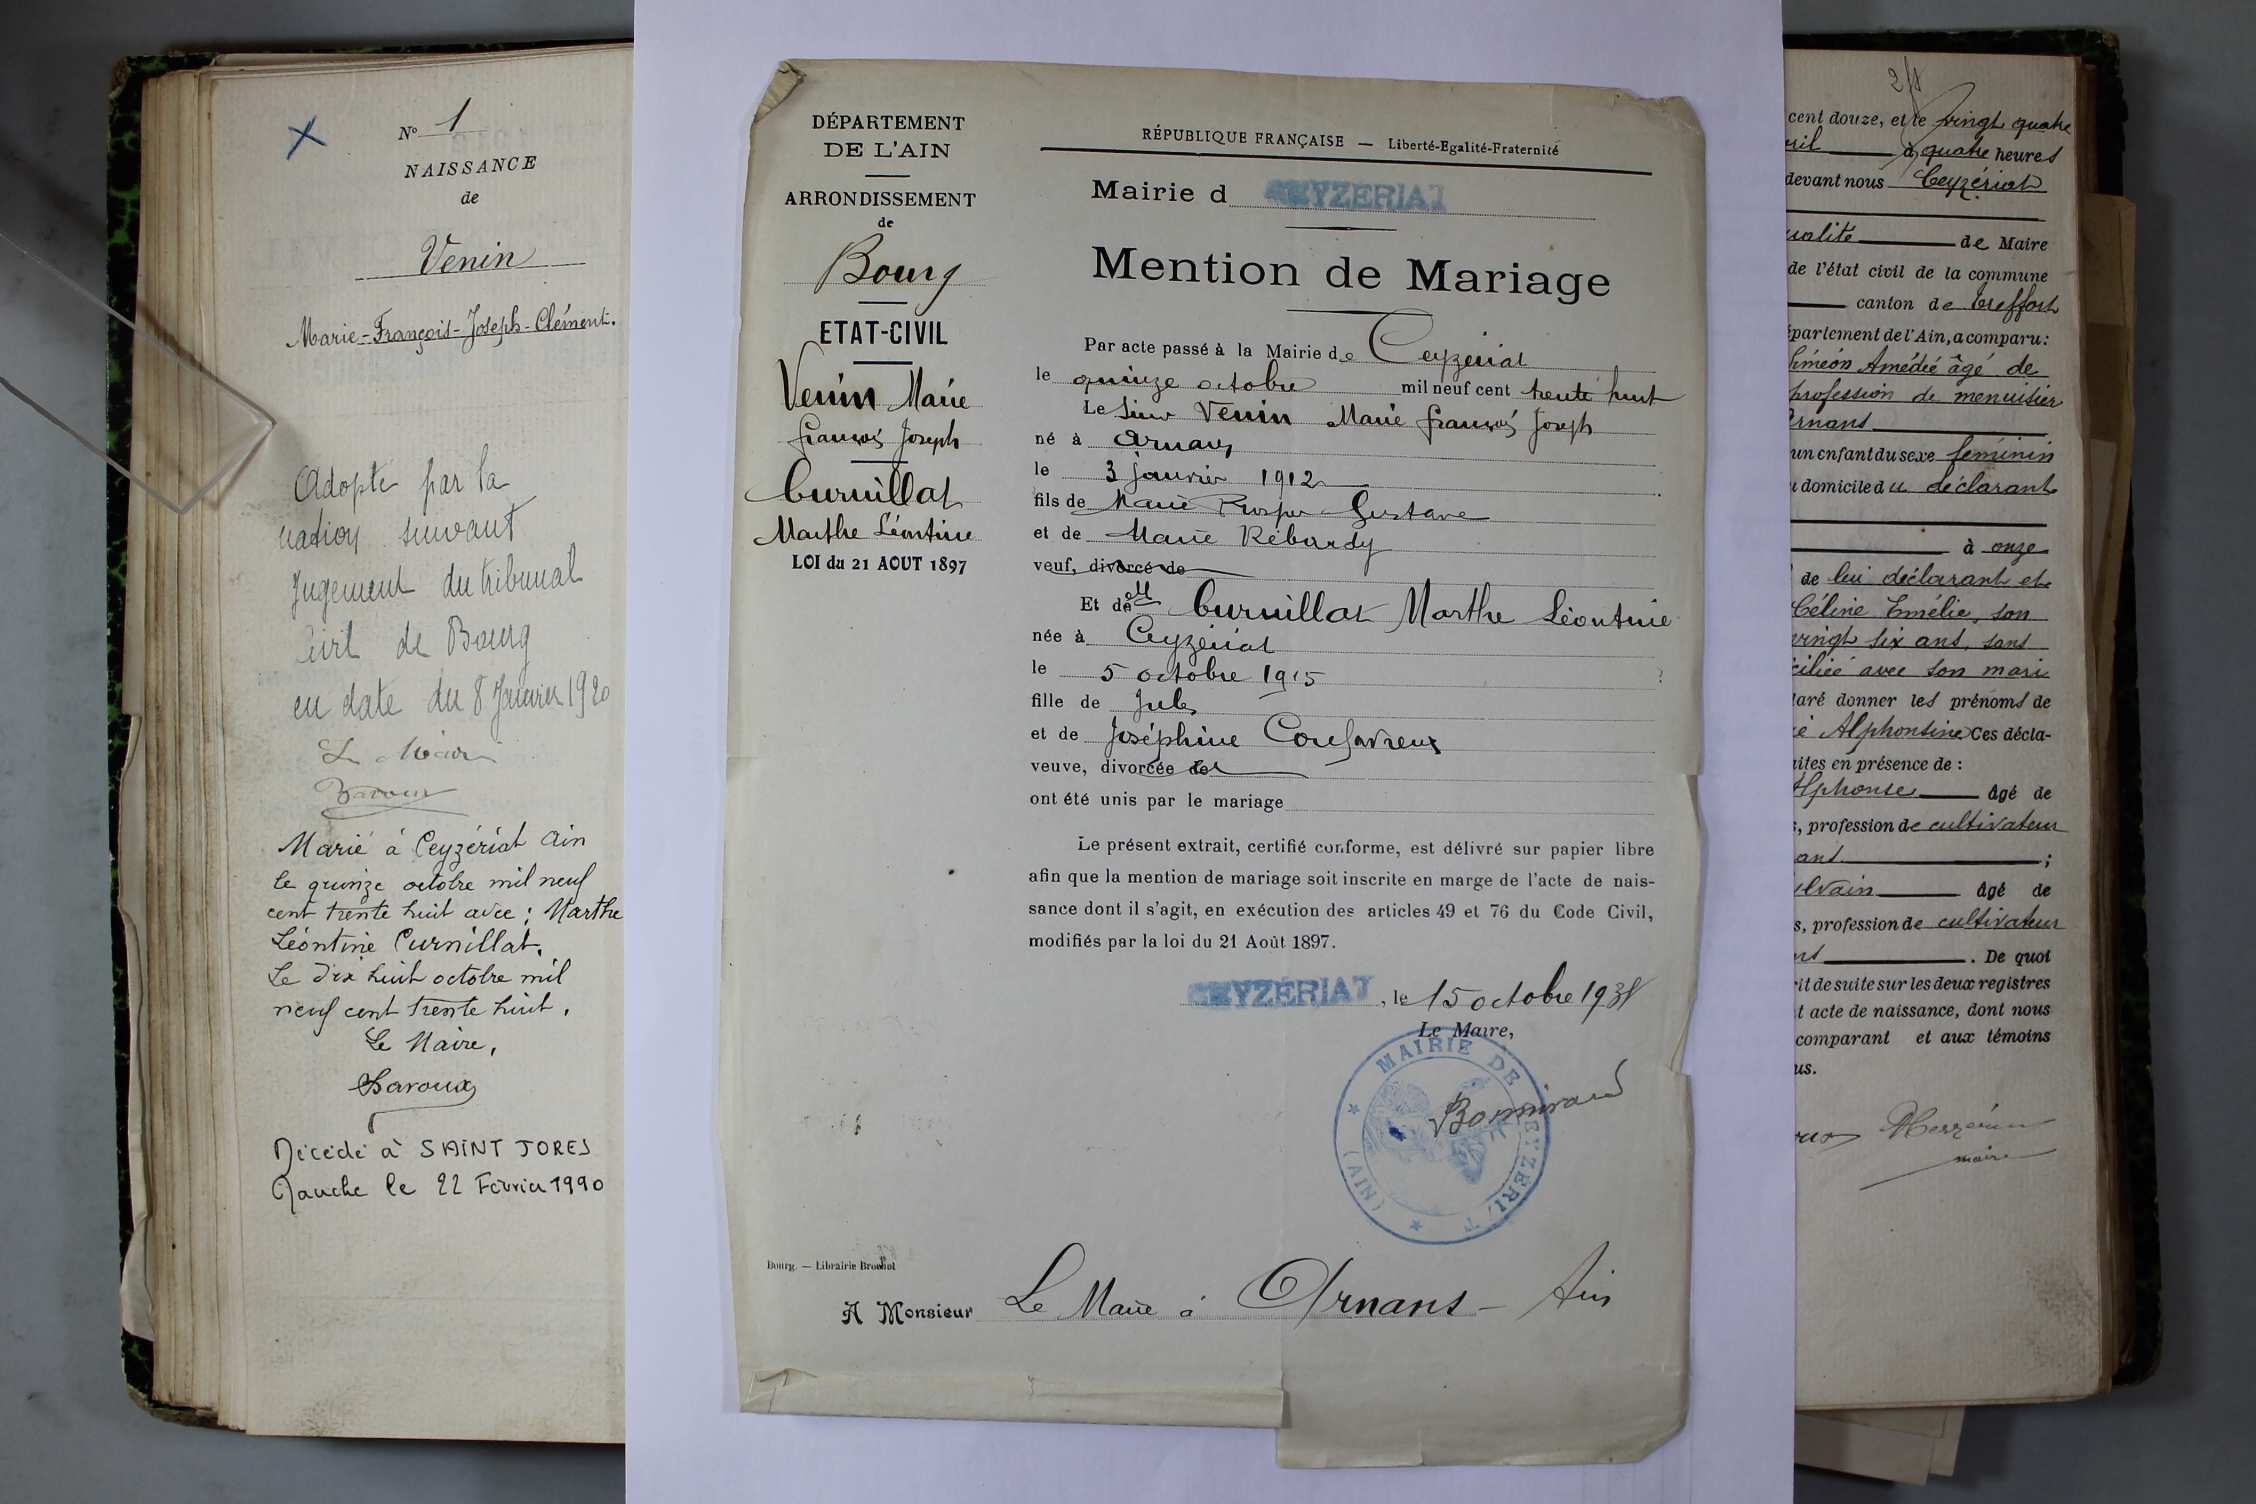 N° 1
NAISSANCE
de
Venin
Marie-François-Joseph-Clément.
Adopté par la
nation suivant
Jugement du tribunal
Civil de Bourg
en date du 8 Janvier 1920
Le Maire
Baroux
Marié à Ceyzériat Ain
le quinze octobre mil neuf
cent trente huit avec : Marthe
Léontine Curnillat.
Le dix huit octobre mil
neuf cent trente huit.
Le Maire,
Baroux
Décédé à SAINT JORES
Manche le 22 Février 1990
DÉPARTEMENT
DE L'AIN
ARRONDISSEMENT
de
Bourg
ETAT-CIVIL
Venin Marie
françois Joseph
Curnillat
Marthe Léontine
LOI du 21 AOUT 1897
RÉPUBLIQUE FRANÇAISE — Liberté-Egalité-Fraternité
Mairie d CEYZÉRIAT
Mention de Mariage
Par acte passé à la Mairie de Ceyzériat
le quinze octobre mil neuf cent trente huit
Le Sieur Venin Marie françois Joseph
né à Arnans
le 3 janvier 1912
fils de Marie Prosper Gustave
et de Marie Rébardy
veuf, divorcé de
Et de Mlle Curnillat Marthe Léontine
née à Ceyzériat
le 5 octobre 1915
fille de Jules
et de Joséphine Confavreux
veuve, divorcée de
ont été unis par le mariage
Le présent extrait, certifié conforme, est délivré sur papier libre
afin que la mention de mariage soit inscrite en marge de l'acte de nais-
sance dont il s'agit, en exécution des articles 49 et 76 du Code Civil,
modifiés par la loi du 21 Août 1897.
CEYZÉRIAT, le 15 octobre 1938
Le Maire,
MAIRIE DE CEYZERIAT
(AIN)
Bourg. — Librairie Brochot
A Monsieur Le Maire à Arnans - Ain
cent douze, et le vingt quatre
à quatre heures
devant nous Ceyzériat
qualité de Maire
de l'état civil de la commune
canton de Treffort
épartement de l'Ain, a comparu :
Siméon Amédée âgé de
profession de menuisier
Arnans
un enfant du sexe féminin
u domicile du déclarant
à onze
de lui déclarant et
Céline Emélie, son
vingt six ans, sans
ciliée avec son mari
laré donner les prénoms de
Alphonsine Ces décla-
aites en présence de :
Alphonse âgé de
s, profession de cultivateur
ant ;
ylvain âgé de
s, profession de cultivateur
. De quoi
rit de suite sur les deux registres
t acte de naissance, dont nous
comparant et aux témoins
us.
maire